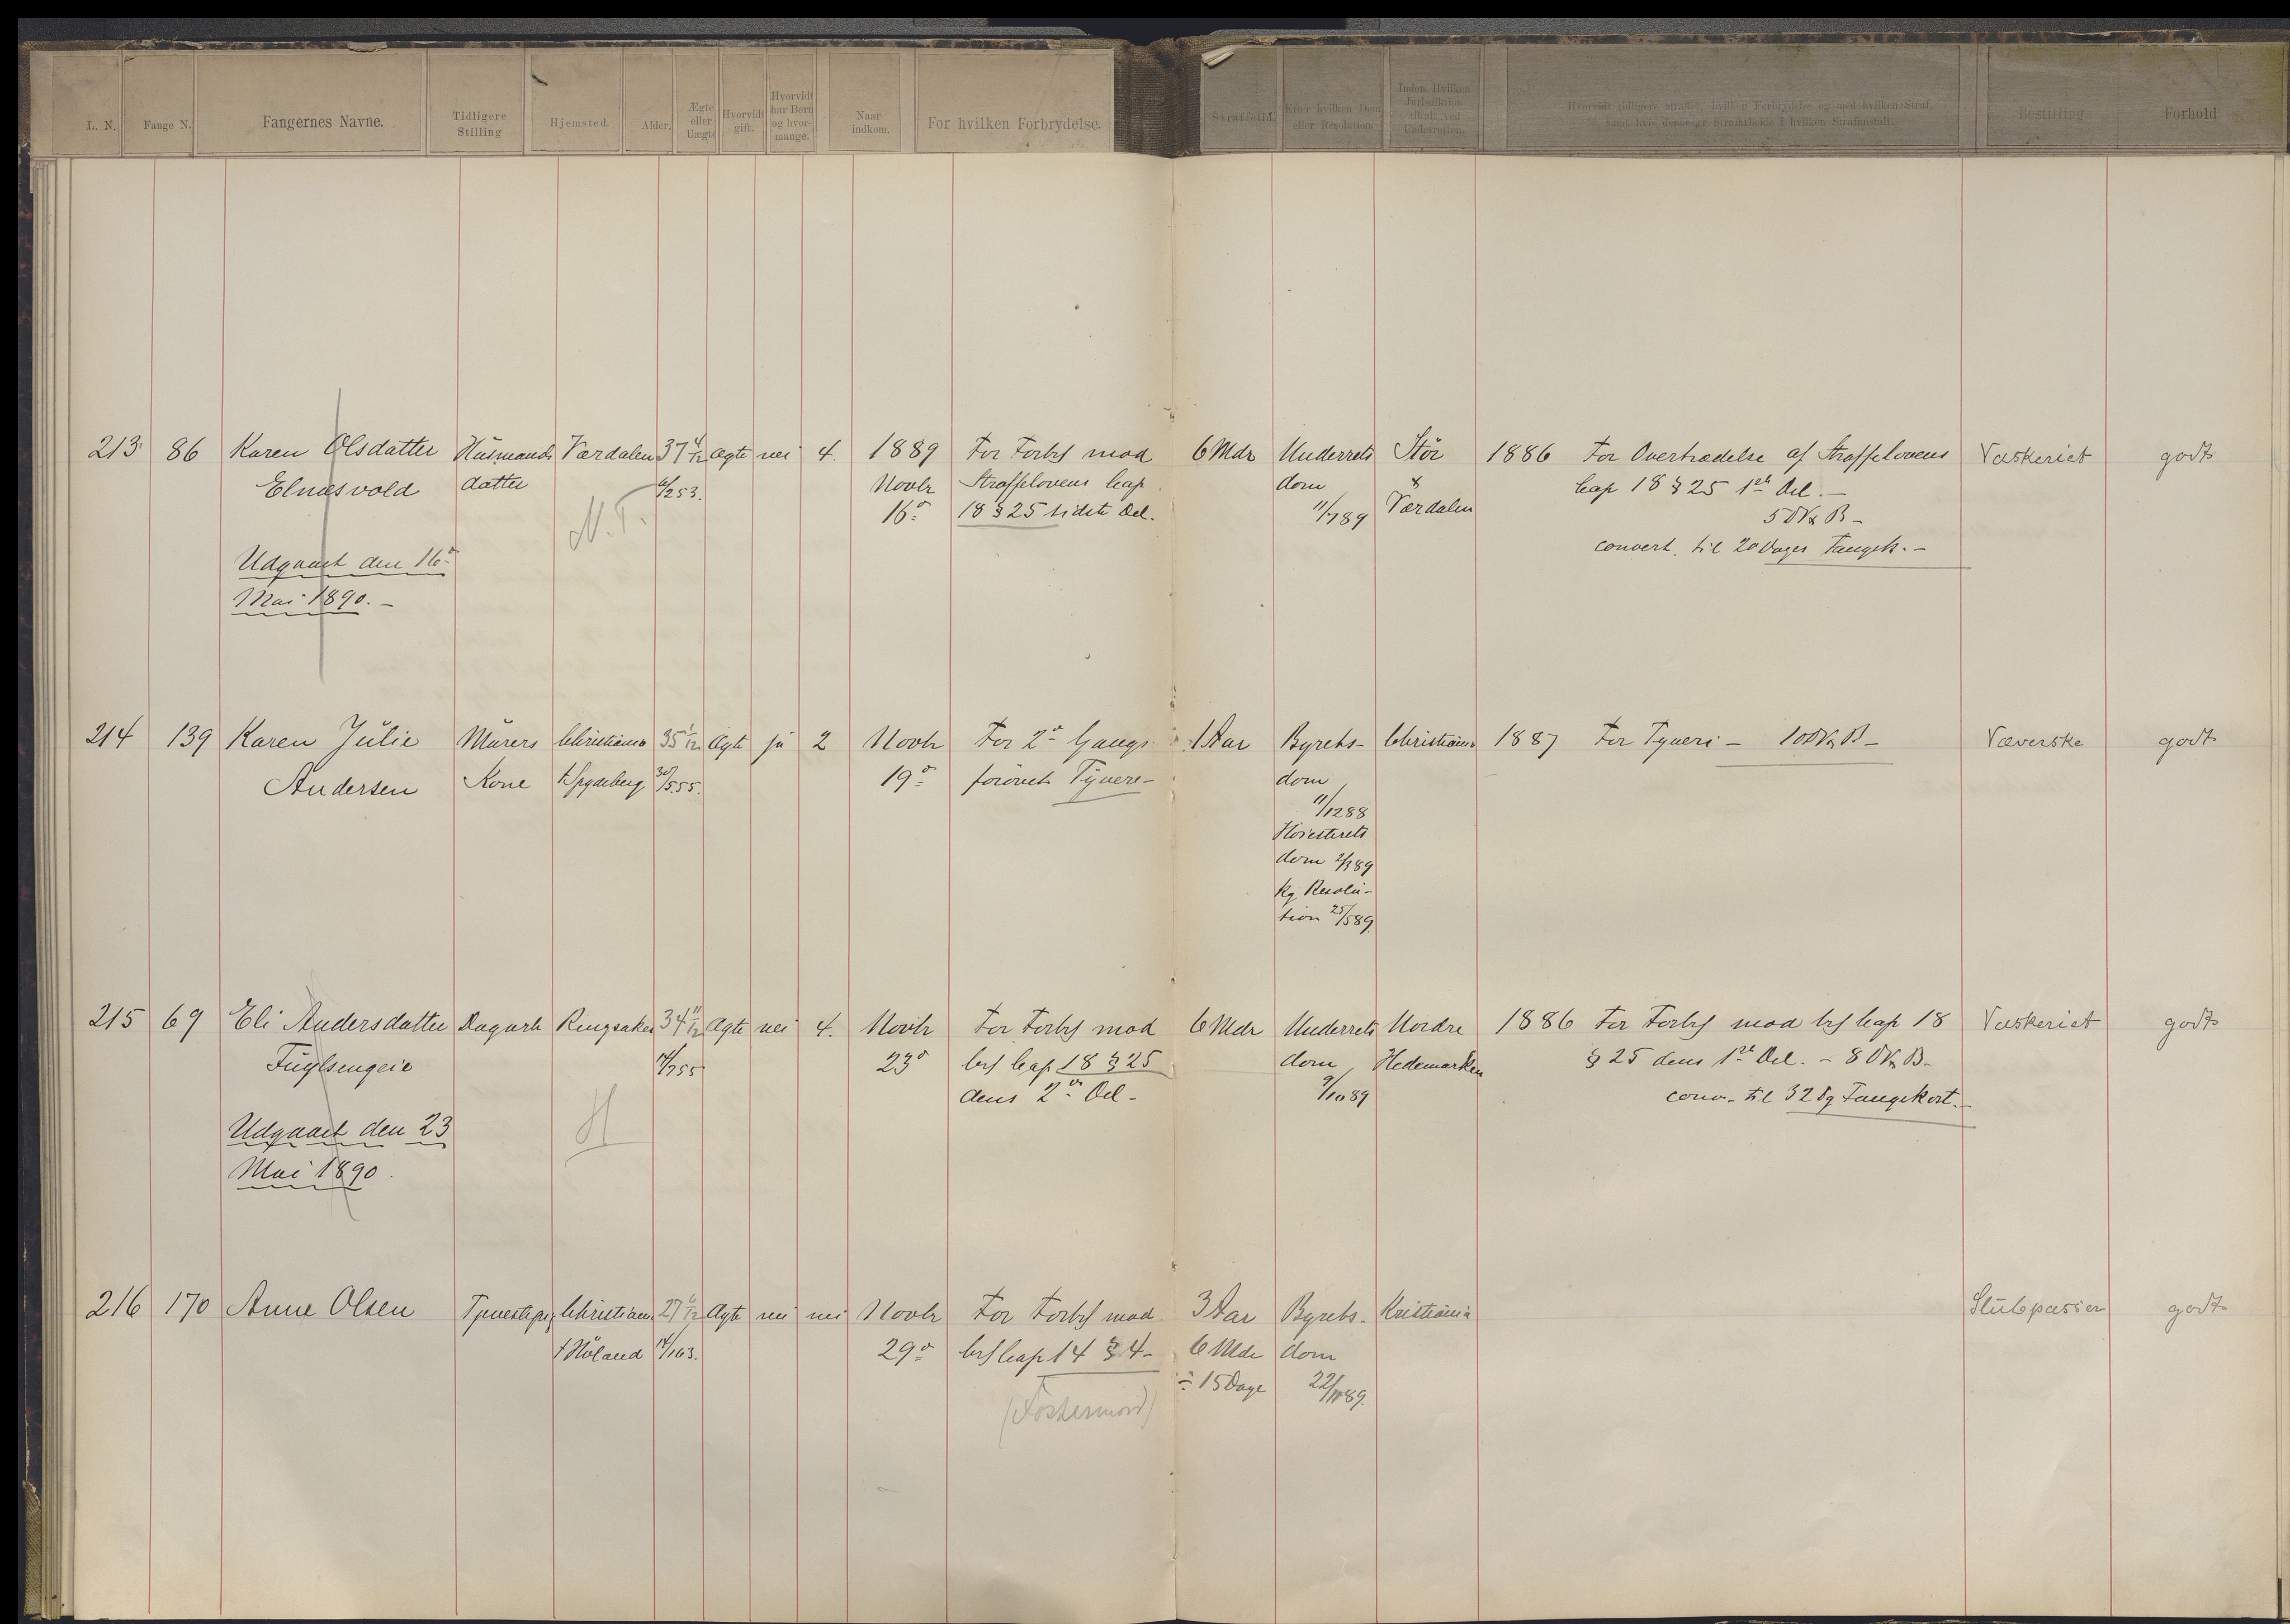 L. N.
Fange N.
Fangernes Navne.
Tidligere
Stilling
Hjemsted.
Alder.
Ægte
eller
Uægte
Hvorvidt
gift.
Hvorvidt
har Børn
og hvor-
mange.
Naar
indkom.
For hvilken Forbrydelse.
Straffetid.
Efter hvilken Dom
eller Resolution.
Inden Hvilken
Jurisdiktion
tiltalt ved
Underretten.
Hvorvidt tidligere straffet, hvilken Forbrydelse og med hvilken Straf,
samt hvis denne er Strafarbeide i hvilken Strafanstalt.
Bestilling.
Forhold
213 86 Karen Olsdatter Húsmands Værdalen 37 4/12 Ægte nei 4. 1889 For Forbr mod 6 Mdr Underrets Stör 1886 For Overtrædelse af Straffelovens Vaskeriet godt
Elnæsvold datter 6/2 53. Novbr Straffelovens Cap dom & Cap 18 § 25 1ste Del. –
N. T. 16de 18 § 25 sidste Del. 11/7 89 Værdalen 5 Dg V & B –
Udgaaet den 16de convert. til 20 Dages Fængsl. –
Mai 1890. –
214 139 Karen Júlie Múrers Christiania 35 1/12 Ægte ja 2 Novbr For 2den Gangs 1 Aar Byrets- Christiania 1887 For Tyveri – 10 D V & B – Væverske godt
Andersen Kone f. Spydeberg 30/5 55. 19de forövet Tyveri – dom
11/12 88
Höiesterets
dom 2/3 89
kg Resolú-
tion 25/5 89.
215 69 Eli Andersdatter Dagarb Ringsaker 34 11/12 Ægte nei 4. Novbr For Forbr mod 6 Mdr Underrets Nordre 1886 For Forbr mod Crl Cap 18 Vaskeriet godt
Fúglsengeie 14/7 55 23de Crl Cap 18 § 25 dom Hedemarken § 25 dens 1ste Del. – 8 D V & B –
H dens 2den Del – 9/10 89 conv. til 32 Dg Fangekost. –
Udgaaet den 23
Mai 1890.
216 170 Anne Olsen Tjenestepig Christiania 27 6/12 Ægte nei nei Novbr For Forbr mod 3 Aar Byrets- Kristiania godt
f Höland 14/1 63. 29de Crl Cap 14 § 4 – 6 Mdr dom
÷ 15 Dage 22/11 89.
(Fostermord)